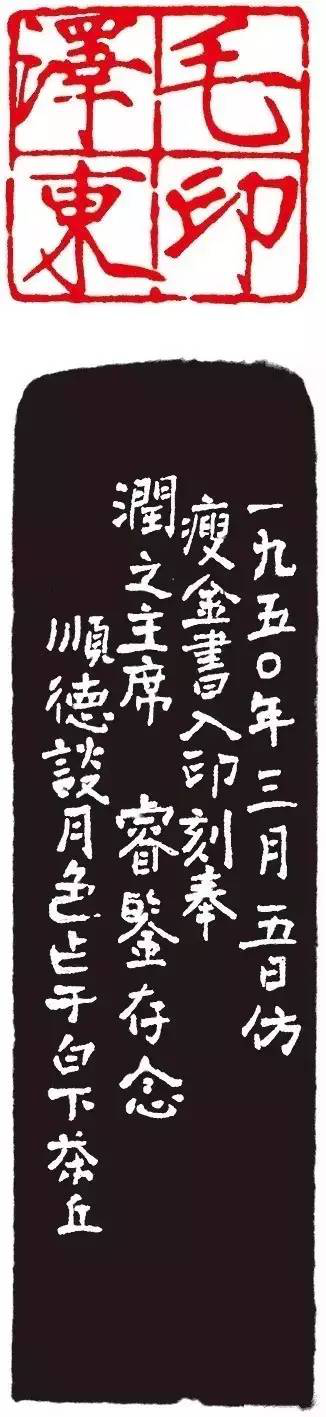 毛印
澤東
一九五〇年三月五日仿
瘦金書入印刻奉
潤之主席 睿鑒存念
順德談月色占于白下茶丘